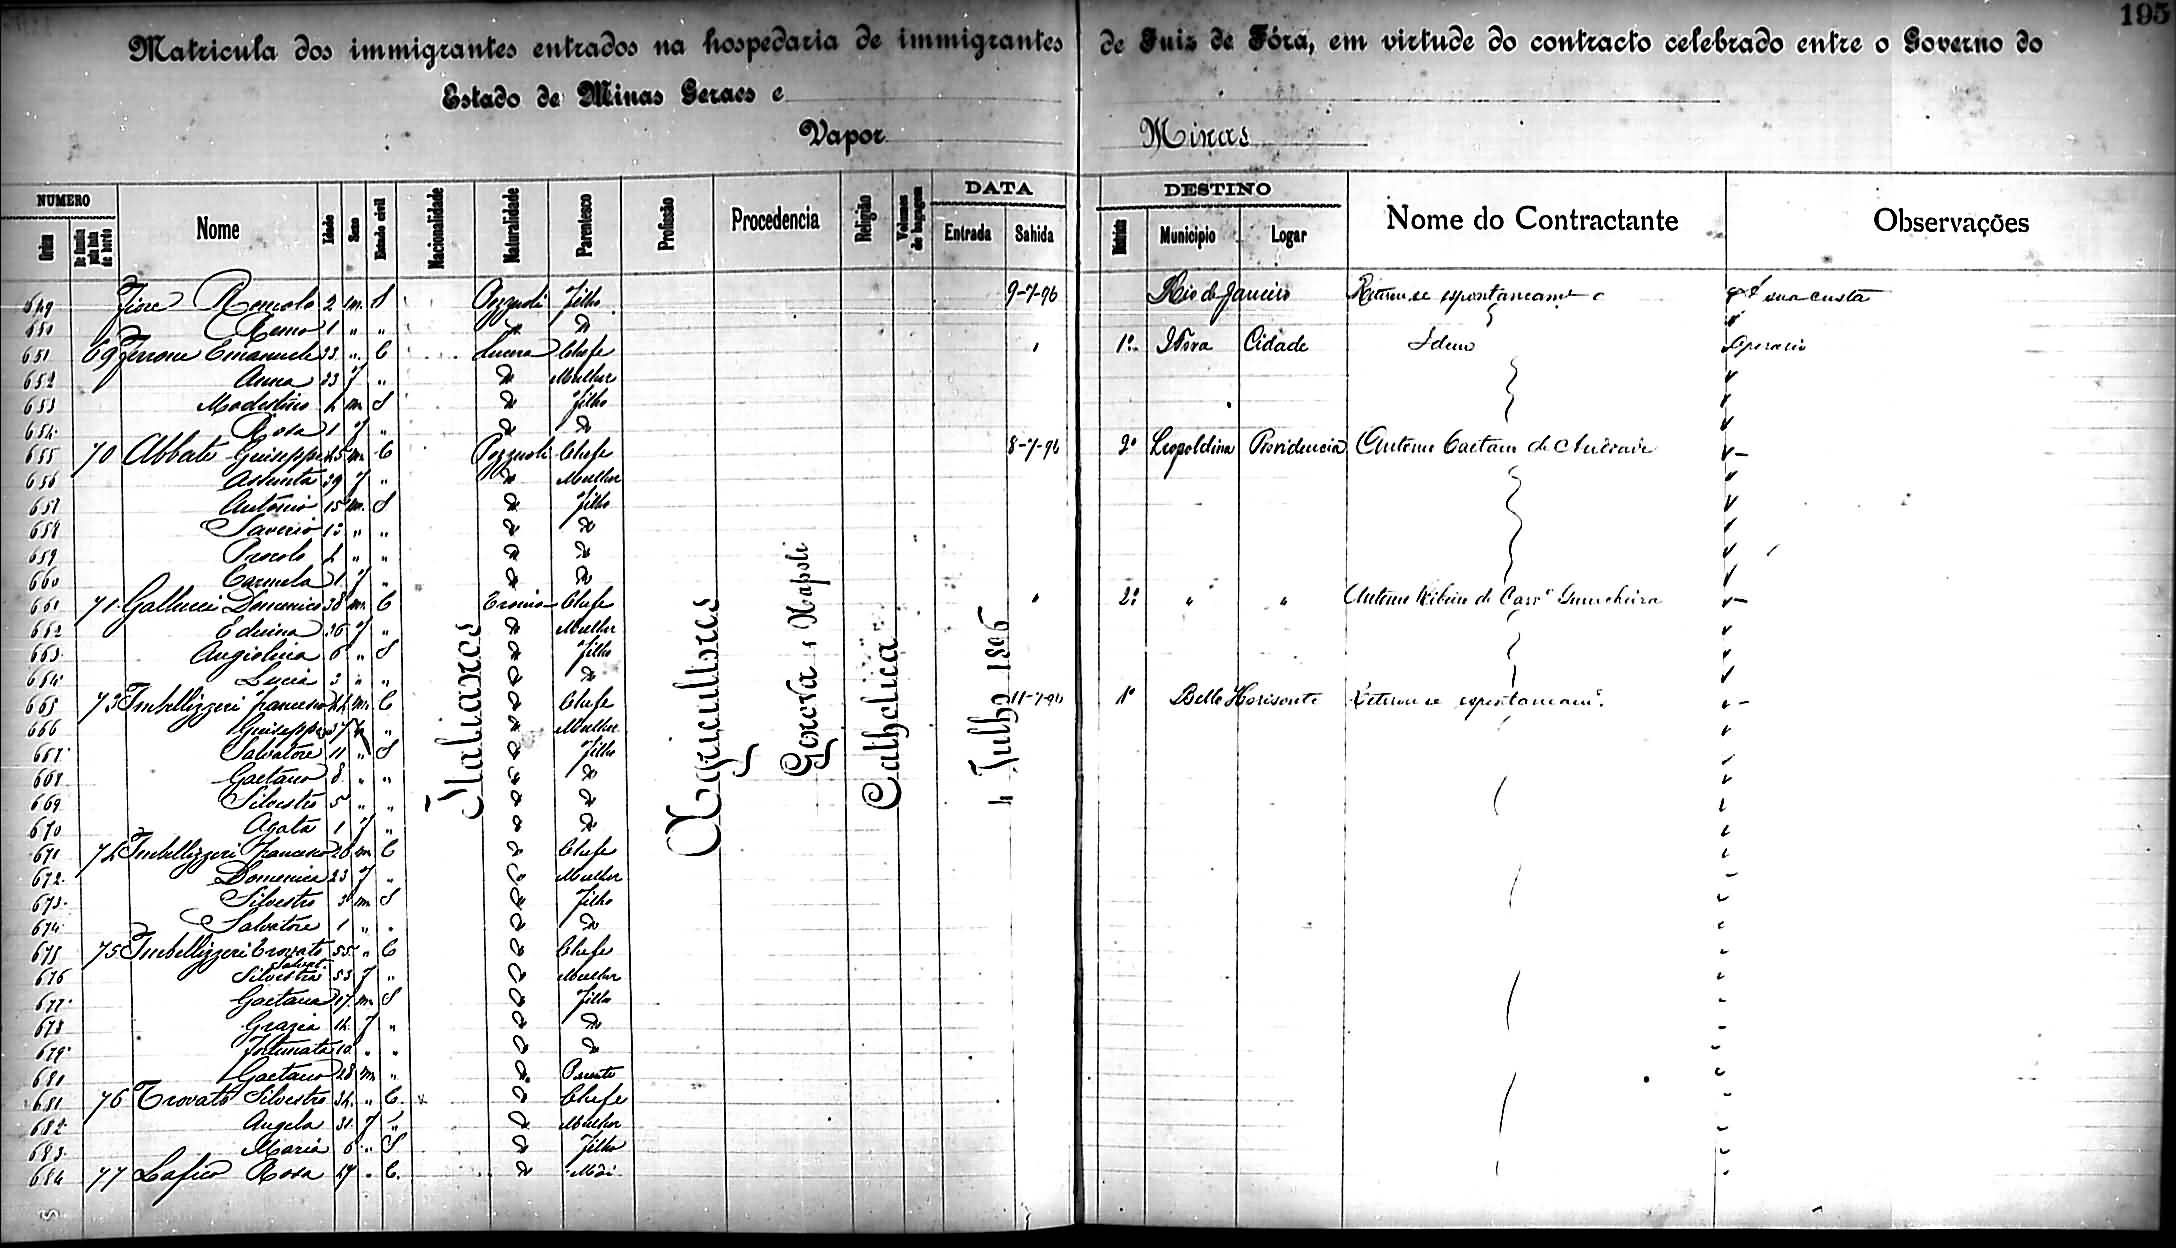 195
Matricula dos immigrantes entrados na hospedaria de immigrantes de Juiz de Fóra, em virtude do contracto celebrado entre o Governo do
Estado de Minas Geraes e
Vapor Minas
NUMERO DATA DESTINO
Ordem Nome Idade Sexo Estado civil Nacionalidade Naturalidade Parentesco Profissão Procedencia Religião Volumes de bagagem Entrada Sahida Districto Municipio Logar Nome do Contractante Observações
Italianos Agricultores Genova e Napoli Catholica 4 Julho 1896
649 Fiore Romolo 2 m. S Pozzuoli Filho 9-7-96 Rio de Janeiro Retirou-se sua custa
650 Remo 1 " " D
651 69 Ferrone Emanuele 33 " C Lucera Chefe " 1º JFóra Cidade Idem Operario
652 Anna 33 F " D Mulher
653 Modestino 4 m. S D Filho
654 Rosa 1 F " D D
655 70 Abbate Giuseppe 45 m. C Pozzuoli Chefe 8-7-96 2º Leopoldina Providencia Antonio Caetano de Andrade
656 Assunta 39 F " D Mulher
657 Antonio 15 m. S D Filho
658 Saverio 12 " " D D
659 Procolo 4 " " D D
660 Carmela 1 F " D D
661 71 Gallucci Domenico 38 m. C Chefe " 2º " " Antonio Ribeiro de
662 36 F " D Mulher
663 Angiolina 6 " S D Filho
664 Lucia 3 " " D D
665 73 Imbellizzeri Francesco 44 m. C D Chefe 11-7-96 1º Bello Horisonte Retirou-se espontaneamᵉ
666 37 " D Mulher
667 Salvatore 11 " S D Filho
668 Gaetano 8 " " D D
669 Silvestro 5 " " D D
670 Agata 1 F " D D
671 74 Imbellizzeri Francesco 26 m. C D Chefe
672 Domenica 23 F " D Mulher
673 Silvestro 3 m. S D Filho
674 Salvatore 1 " " D D
675 75 Imbellizzeri Trovato 55 " C D Chefe
Salvat
676 Silvestra 53 F " D Mulher
677 Gaetana 17 m. S D Filho
678 Grazia 14 F " D D
679 Fortunata 10 " " D D
681 Gaetano 28 m. " D Parente
681 76 Trovato Silvestro 34 " C. D Chefe
682 Angela 31 F " D Mulher
683 Maria 6 " S D Filho
684 77 Rosa " C. D Mãi